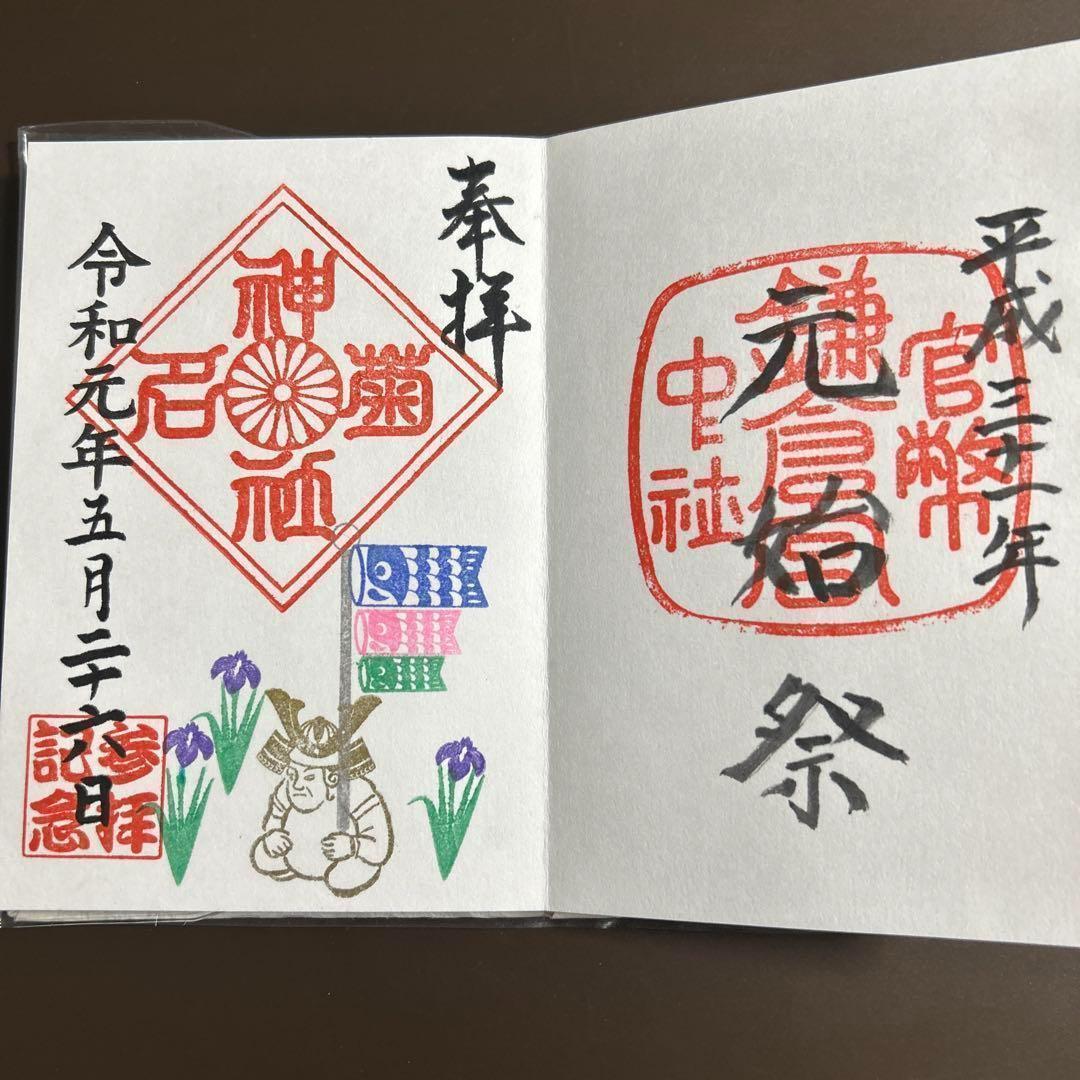 平成三十一年
元始祭
官幣
鎌倉宮
中社
奉拝
菊名
神社
令和元年五月二十六日
参拝
記念